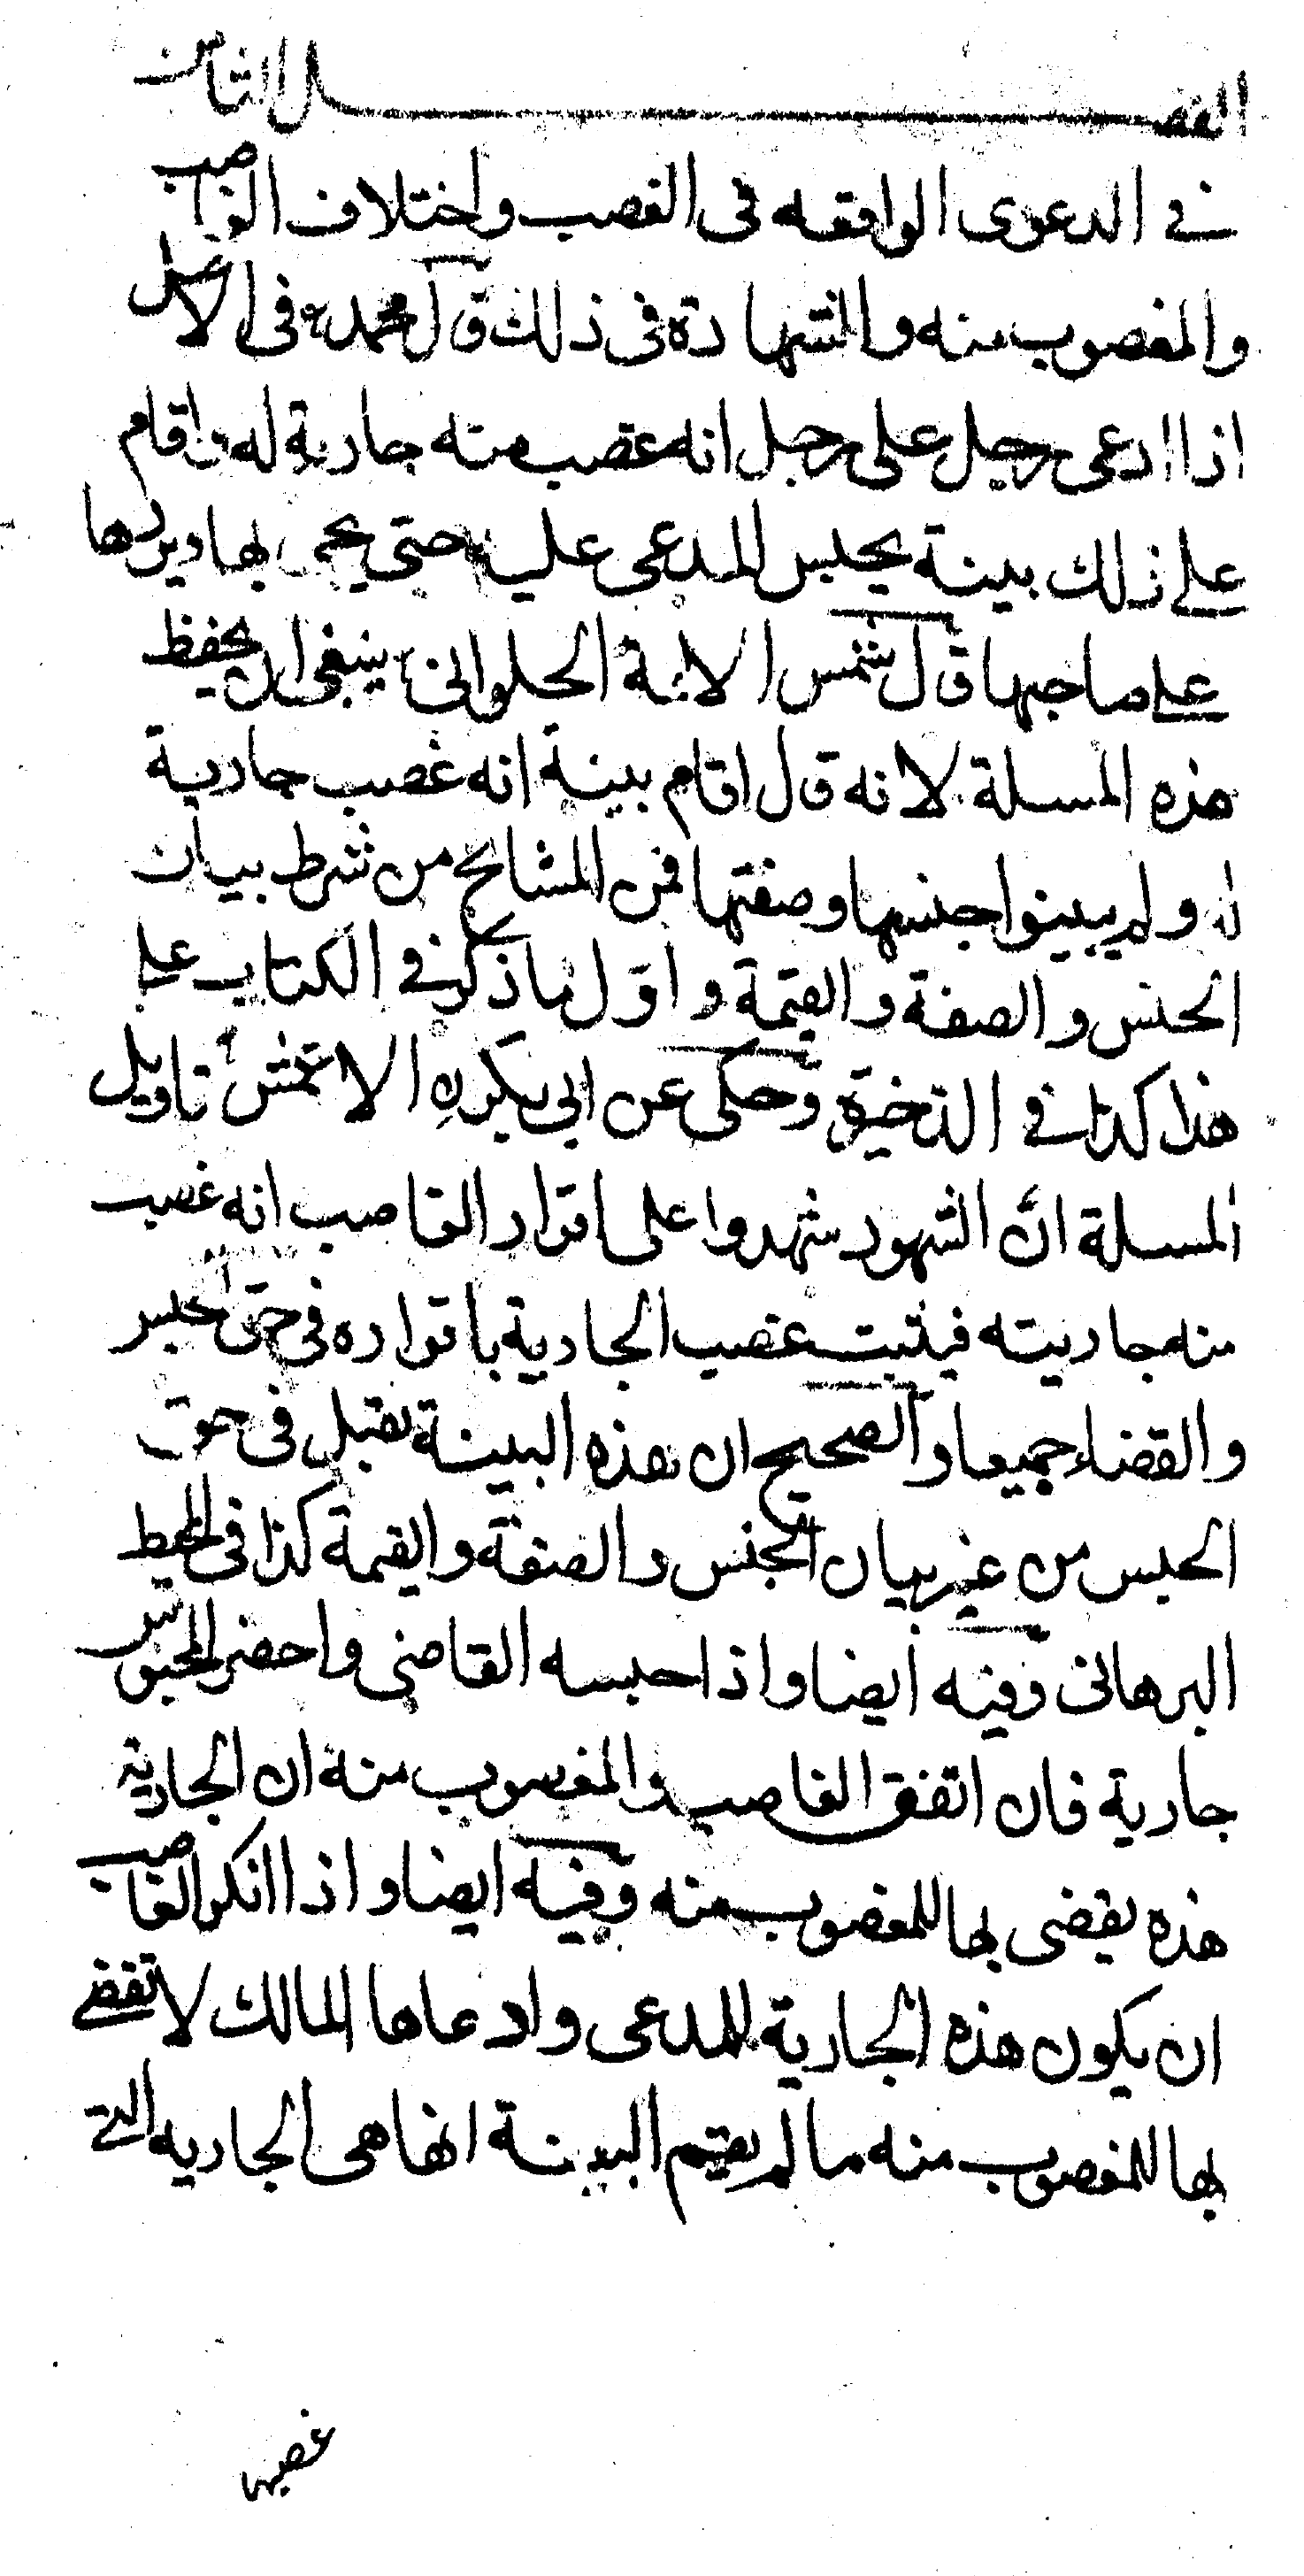 الفصل الثامن
في الدعوى الواقعه فى الغصب واختلاف الغاصب
والمغصوب منه والشهادة فى ذلك قال محمد فى الاصل
اذا ادعى رجل على رجل انه غصب منه جارية له واقام
على ذلك بينة يحبس المدعى عليه حتى يجى بها ويردها
على صاحبها قال شمس الائمة الحلوانى ينبغى ان يحفظ
هذه المسلة لانه قال اقام بينة انه غصب جارية
له ولم يبينوا جنسها وصفتها فمن المشايخ من شرط بيان
الجنس والصفة والقيمة واول ما ذكر في الكتاب على
هذا كذا في الذخيرة وحكى عن ابى بكر الاعمش تاويل
المسلة ان الشهود شهدوا على اقرار الغاصب انه غصب
منه جاريته فيثبت غصب الجارية باقراره فى حق الحبس
والقضاء جميعا والصحيح ان هذه البينة تقبل فى حق
الحبس من غير بيان الجنس والصفة والقيمة كذا فى المحيط
البرهانى وفيه ايضا واذا حبسه القاضى واحضر المحبوس
جارية فان اتفق الغاصب والمغصوب منة ان الجارية
هذه يقضى بها للمغصوب منه وفيه ايضا واذا انكر الغاصب
ان يكون هذه الجارية للمدعى وادعاها المالك لا تقضى
بها للمغصوب منه ما لم يقيم البينة انها هى الجاريه التى
غصبها